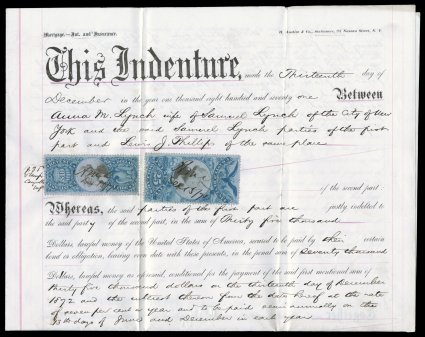 Mortgage.—Int. and Insurance.
This Indenture, made the Thirteenth day of
December in the year one thousand eight hundred and seventy one Between
Anna M. Lynch wife of Samuel Lynch of the City of New
York and the said Samuel Lynch parties of the first
part and Lewis J. Phillips of the same place
of the second part:
Whereas, the said parties of the first part are justly indebted to
the said party of the second part, in the sum of Thirty five thousand
Dollars, lawful money of the United States of America, secured to be paid by their certain
bond or obligation, bearing even date with these presents, in the penal sum of Seventy thousand
Dollars, lawful money as aforesaid, conditioned for the payment of the said first mentioned sum of
Thirty five thousand dollars on the thirteenth day of December
1872 and the interest thereon from the date hereof at the rate
of seven per cent a year and to be paid semi annually on the
13th days of June and December in each year